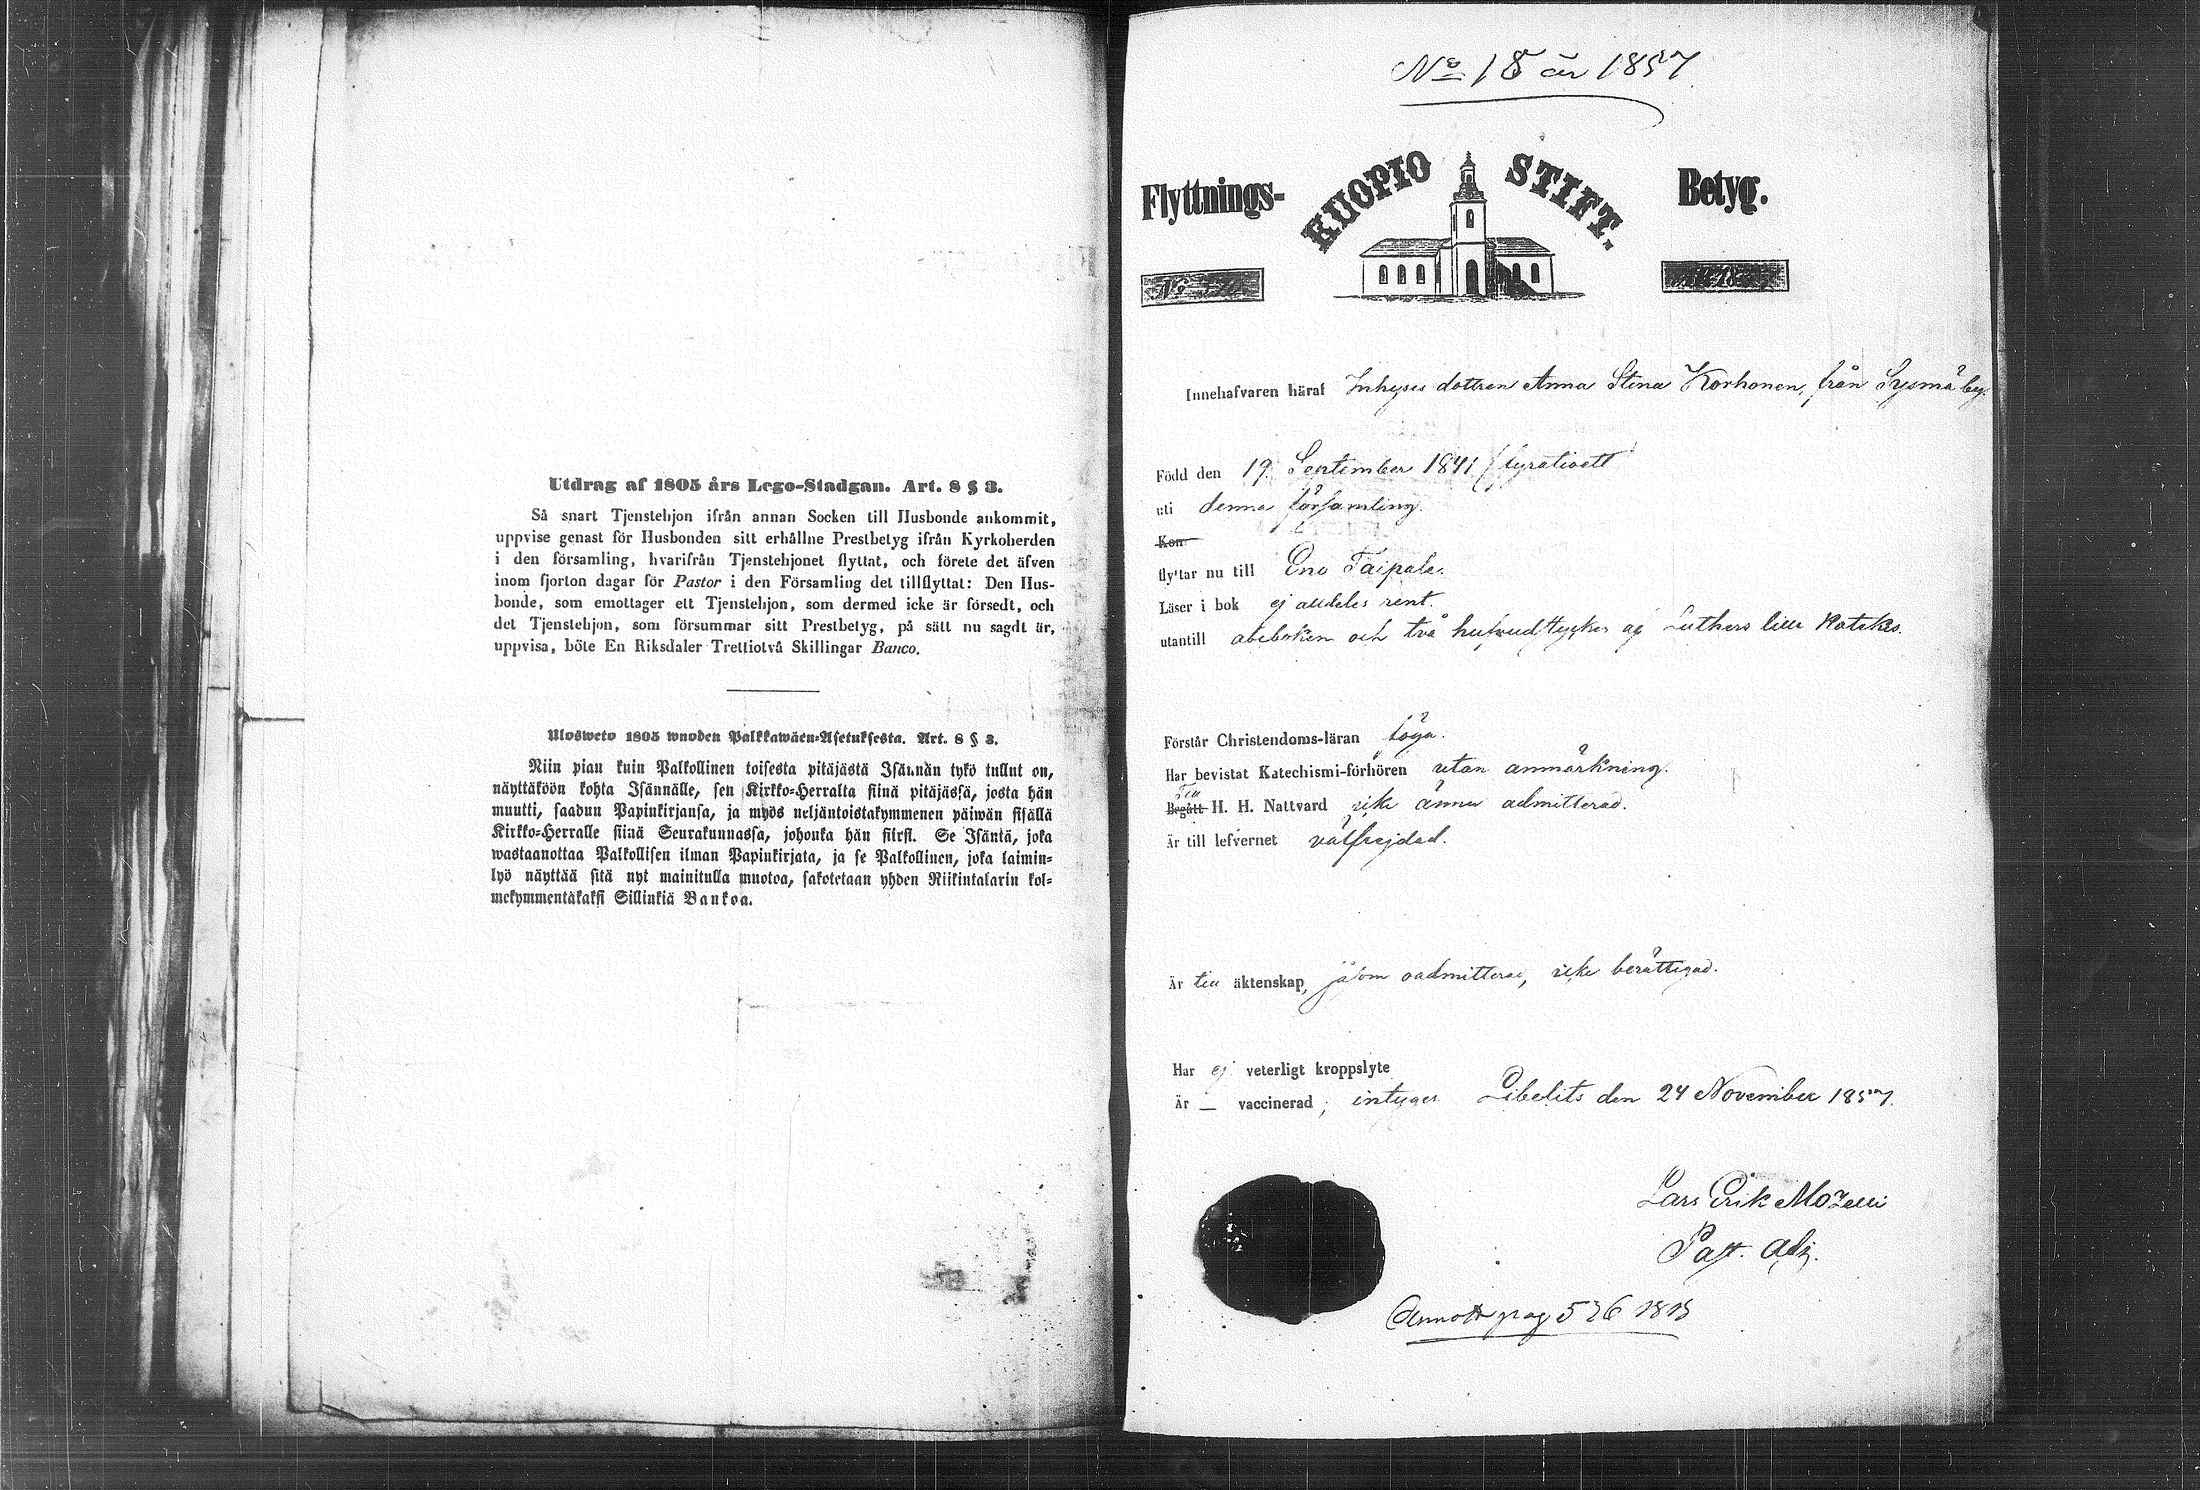 Utdrag af 1805 års Lego-Stadgan. Art. 8 § 3.
Så snart Tjenstehjon ifrån annan Socken till Husbonde ankommit,
uppvise genast för Husbonden sitt erhållne Prestbetyg ifrån Kyrkoherden
i den församling, hvarifrån Tjenstehjonet flyttat, och förete det äfven
inom fjorton dagar för Pastor i den Församling det tillflyttat: Den Hus-
bonde, som emottager ett Tjenstehjon, som dermed icke är försedt, och
det Tjenstehjon, som försummar sitt Prestbetyg, på sätt nu sagdt är,
uppvisa, böte En Riksdaler Trettiotvå Skillingar Banco.
Ulosweto 1805 wuoden Palkkawäen-Asetuksesta. Art. 8 § 3.
Niin pian kuin Palkollinen toisesta pitäjästä Isännän tykö tullut on,
näyttäköön kohta Isännälle, sen Kirkko-Herralta siinä pitäjässä, josta hän
muutti, saadun Papinkirjansa, ja myös neljäntoistakymmenen päiwän sisällä
Kirkko-Herralle siinä Seurakunnassa, johonka hän siirsi. Se Isäntä, joka
wastaanottaa Palkollisen ilman Papinkirjata, ja se Palkollinen, joka laimin-
lyö näyttää sitä nyt mainitulla muotoa, sakotetaan yhden Riikintalarin kol-
mekymmentäkaksi Sillinkiä Bankoa.
No 18 år 1857
Flyttnings- KUOPIO STIFT. Betyg.
No
Innehafvaren häraf Inhyses dottren Anna Stina Korhonen, från Sysmä by.
Född den 19 September 1841
uti denna församling.
Kon
flyttar nu till Eno Taipale.
Läser i bok ej alldeles rent.
utantill abcboken och två hufvudstycken af Luthers lilla Katekes.
Förstår Christendoms-läran föga.
Har bevistat Katechismi-förhören utan anmärkning.
Till
Begått H. H. Nattvard icke ännu admitterad.
Är till lefvernet välfrejdad.
Är till äktenskap, såsom oadmitterad, icke berättigad.
Har ej veterligt kroppslyte
Är — vaccinerad; intygar Libelits den 24 November 1857.
Lars Erik
Past. Adj.
Annott pag 536